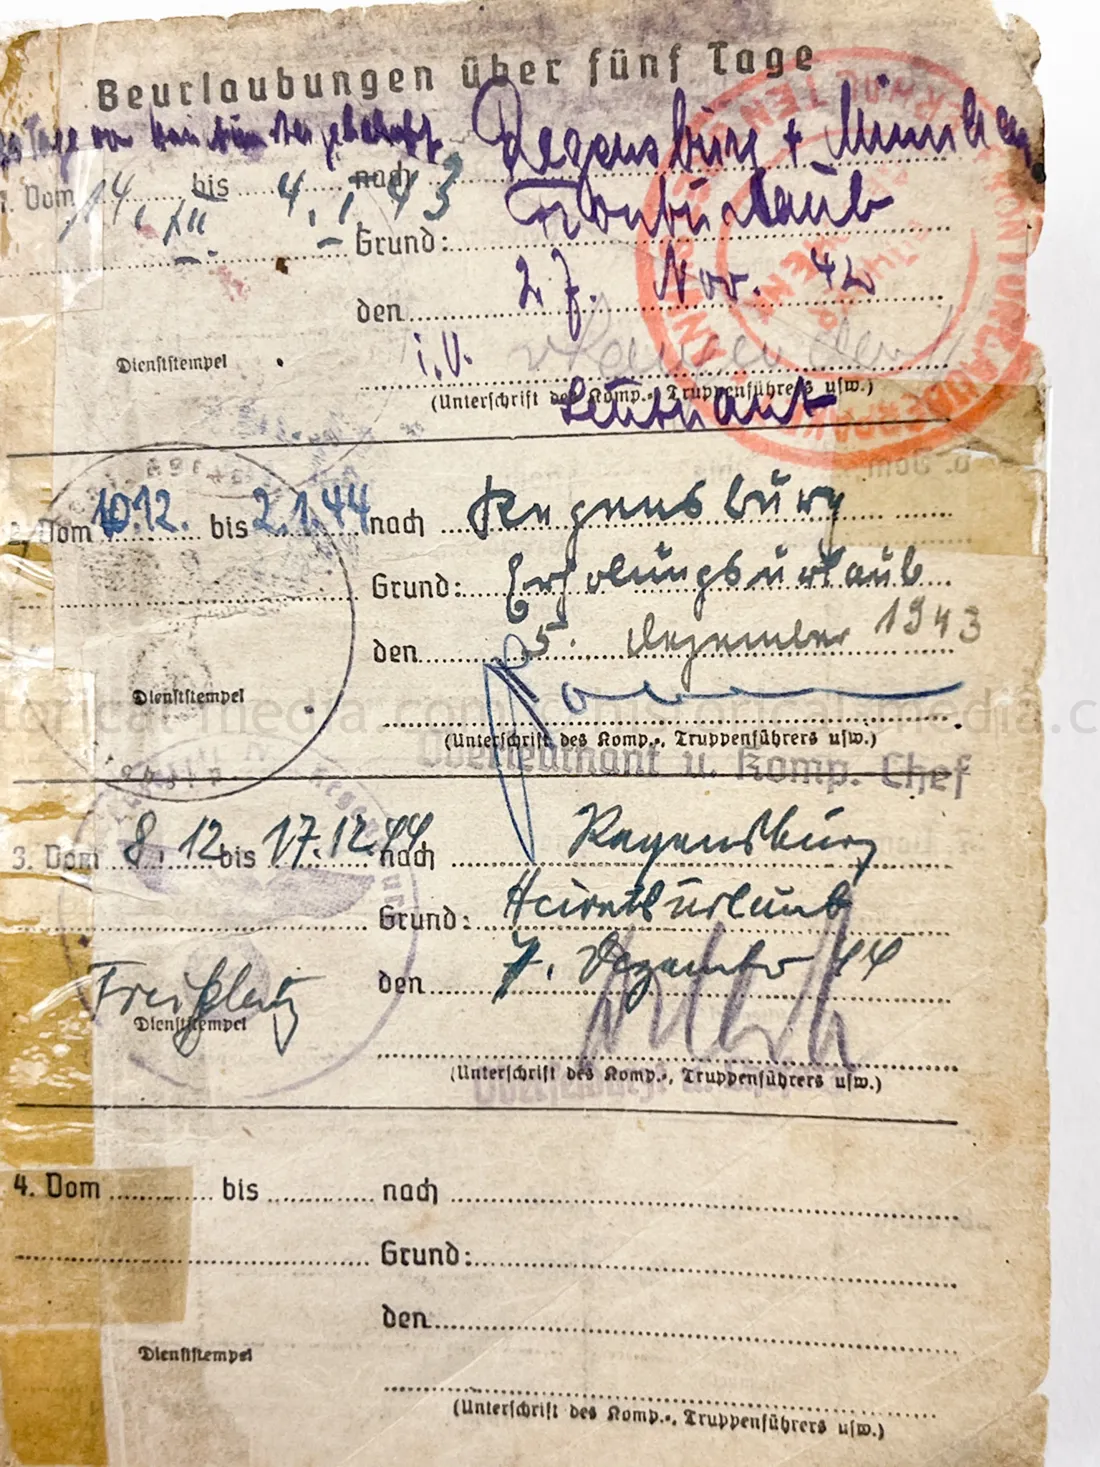 Beurlaubungen über fünf Tage
Tage von
Regensburg + München
1. Vom 14. XII bis 4. 1. 43 nach
Grund: Fronturlaub
den 27. Nov. 42
Dienststempel
i.V.
(Unterschrift des Komp.-, Truppenführers usw.)
Leutnant
2. Vom 10.12. bis 2.1.44 nach Regensburg
Grund: Erholungsurlaub
den 5. Dezember 1943
Dienststempel
(Unterschrift des Komp.-, Truppenführers usw.)
Oberleutnant u. Komp. Chef
3. Vom 8. 12 bis 17.12.44 nach Regensburg
Grund: Heiratsurlaub
den 7. Dezember 44
Dienststempel
(Unterschrift des Komp.-, Truppenführers usw.)
4. Vom bis nach
Grund:
den
Dienststempel
(Unterschrift des Komp.-, Truppenführers usw.)